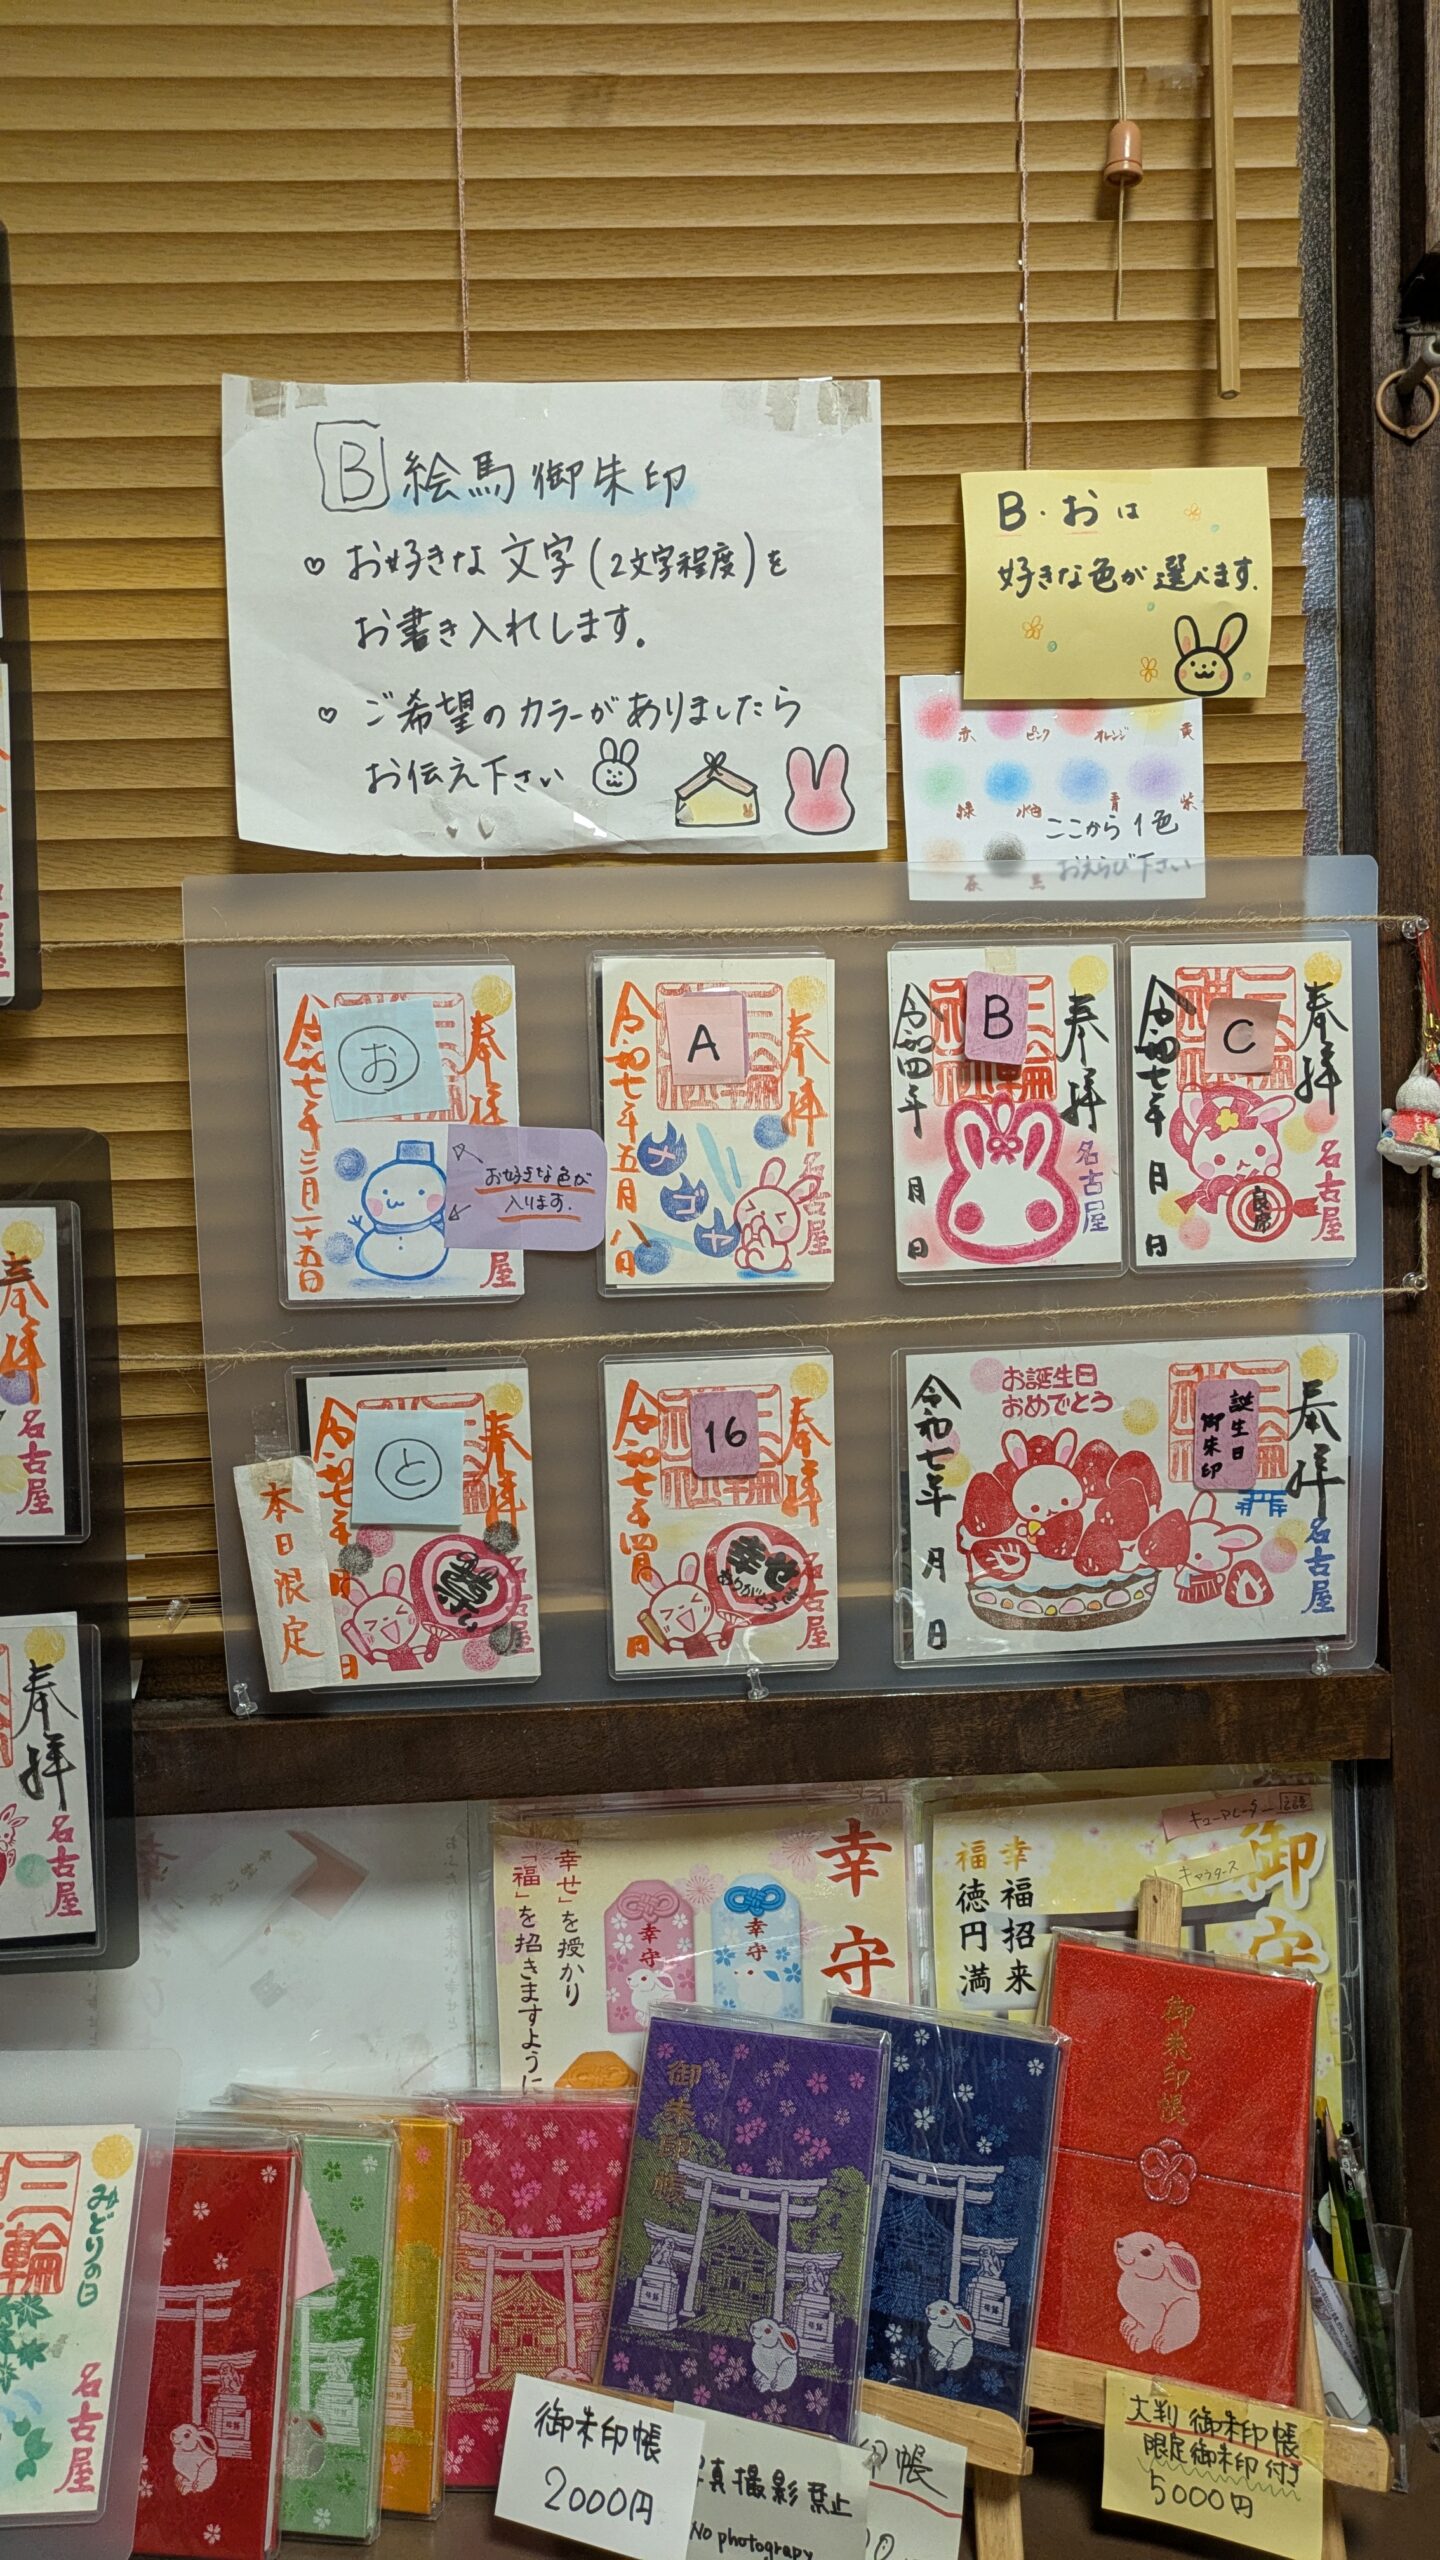 B 絵馬御朱印
♡ お好きな文字(2文字程度)を
お書き入れします。
♡ ご希望のカラーがありましたら
お伝え下さい
B・おは
好きな色が選べます.
赤 ピンク オレンジ 黄
緑 水色 青 紫
ここから1色
おえらび下さい
茶 黒
お
奉拝
令和七年二月二十五日
お好きな色が
入ります.
屋
A
奉拝
令和七年五月八日
ナゴヤ
名古屋
B
奉拝
令和四年 月 日
名古屋
C
奉拝
令和七年 月 日
名古屋
と
奉拝
令和七年
月
日
本日限定
16
奉拝
令和七年四月
日
幸せを
ありがとう
名古屋
お誕生日
おめでとう
誕生日
御朱印
奉拝
令和七年 月 日
名古屋
奉拝
名古屋
奉拝
名古屋
幸守
「幸せ」を授かり
「福」を招きますように
幸守
幸守
御守
幸福招来
福徳円満
キャラクターズ
三輪
みどりの日
名古屋
御朱印帳
御朱印帳
御朱印帳
2000円
写真撮影禁止
No photograpy
印帳
大判 御朱印帳
限定御朱印付き
5000円